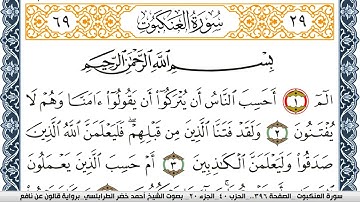 ٢٩ سُورَةُ الْعَنكَبُوتِ ٦٩
بِسْمِ اللَّهِ الرَّحْمَٰنِ الرَّحِيمِ
أَلَمِّ ١ أَحَسِبَ النَّاسُ أَن يُتْرَكُوا أَن يَقُولُوا ءَامَنَّا وَهُمْ لَا
يُفْتَنُونَ ٢ وَلَقَدْ فَتَنَّا الَّذِينَ مِن قَبْلِهِمْ فَلَيَعْلَمَنَّ اللَّهُ الَّذِينَ
صَدَقُوا وَلَيَعْلَمَنَّ الْكَاذِبِينَ ٣ أَمْ حَسِبَ الَّذِينَ يَعْمَلُونَ
سورة العنكبوت الصفحة ٣٩٦ الحزب ٤٠ الجزء ٢٠ بصوت الشيخ أحمد خضر الطرابلسي برواية قالون عن نافع